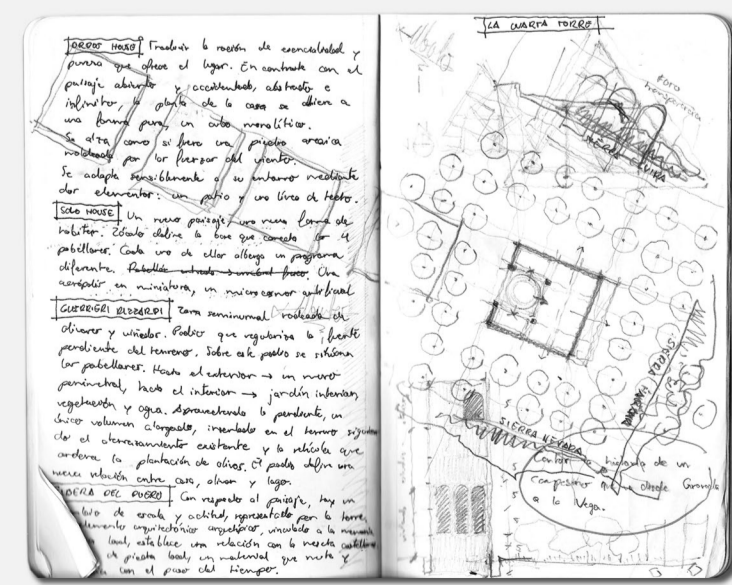 ARGOS HOUSE Traducir la noción de esencialidad y
pureza que ofrece el lugar. En contraste con el
paisaje abierto y accidentado, abstracto e
infinito, la planta de la casa se adhiere a
una forma pura, un cubo monolítico.
Se alza como si fuera una piedra arcaica
moldeada por las fuerzas del viento.
Se adapta sensiblemente a su entorno mediante
dos elementos: un patio y una línea de techo.
SOLO HOUSE Un nuevo paisaje, una nueva forma de
habitar. Zócalo define la base que conecta los 4
pabellones. Cada uno de ellos alberga un programa
diferente. Una
acrópolis en miniatura, un microcosmos artificial
GUERRIERI RIZZARDI Zona seminatural rodeada de
olivares y viñedos. Podio que regulariza la fuerte
pendiente del terreno. Sobre este podio se sitúan
los pabellones. Hacia el exterior → un muro
perimetral, hacia el interior → jardín interior,
vegetación y agua. Aprovechando la pendiente, un
único volumen alargado, insertado en el terreno siguien
do el aterrazamiento existente y la retícula que
ordena la plantación de olivos. El podio define una
nueva relación entre casa, olivar y lago.
RIBERA DEL DUERO Con respecto al paisaje, hay un
de escala y actitud, representado por la torre,
elemento arquitectónico arquetípico, vinculado a la memoria
local, establece una relación con la meseta castellana
de piedra local, un material que muta y
con el paso del tiempo.
LA CUARTA TORRE
SIERRA ELVIRA
SIERRA
SIERRA NEVADA
Contar la historia de un
campesino que va desde Granada
a la Vega.